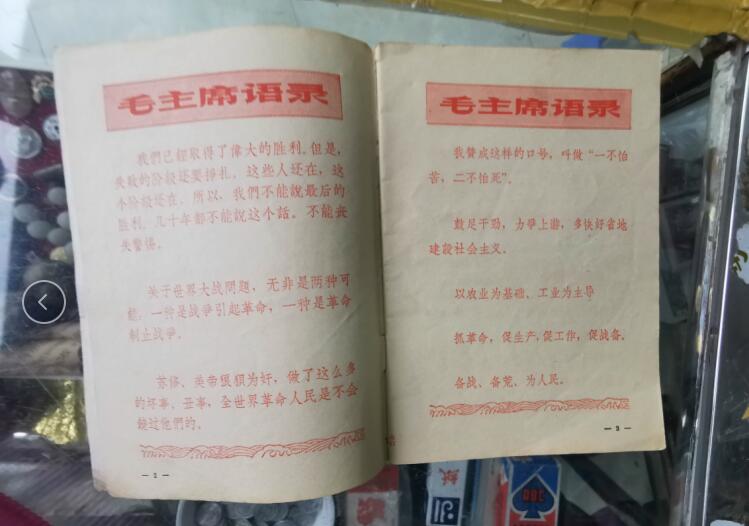 毛主席语录
我們已經取得了偉大的胜利。但是，
失敗的阶級还要掙扎。这些人还在，这
个阶級还在。所以，我們不能說最后的
胜利。几十年都不能說这个話。不能丧
失警惕。
关于世界大战問題，无非是两种可
能：一种是战爭引起革命，一种是革命
制止战爭。
苏修、美帝狼狽为奸，做了这么多
的坏事、丑事，全世界革命人民是不会
饒过他們的。
— 2 —
毛主席语录
我贊成这样的口号，叫做“一不怕
苦，二不怕死”。
鼓足干劲，力爭上游，多快好省地
建設社会主义。
以农业为基础、工业为主导
抓革命，促生产，促工作，促战备。
备战、备荒、为人民。
— 3 —